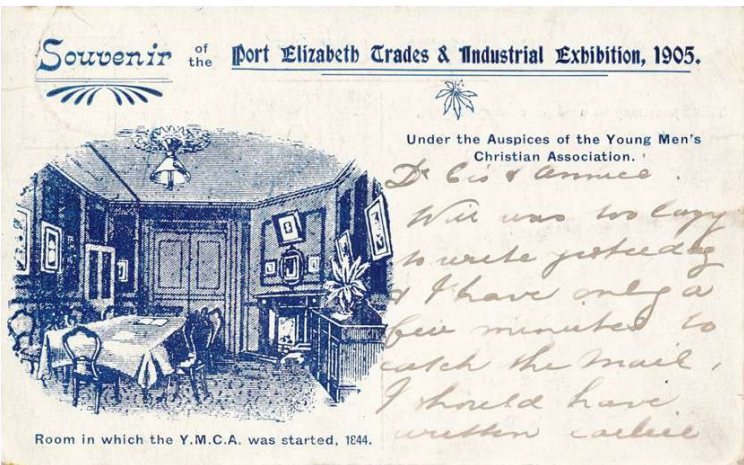 Souvenir of the Port Elizabeth Trades & Industrial Exhibition, 1905.
Under the Auspices of the Young Men's
Christian Association.
Dr Cis & Annie.
Will was too lazy
to write yesterday
& I have only a
few minutes to
catch the mail,
I should have
written earlier
Room in which the Y.M.C.A. was started, 1844.